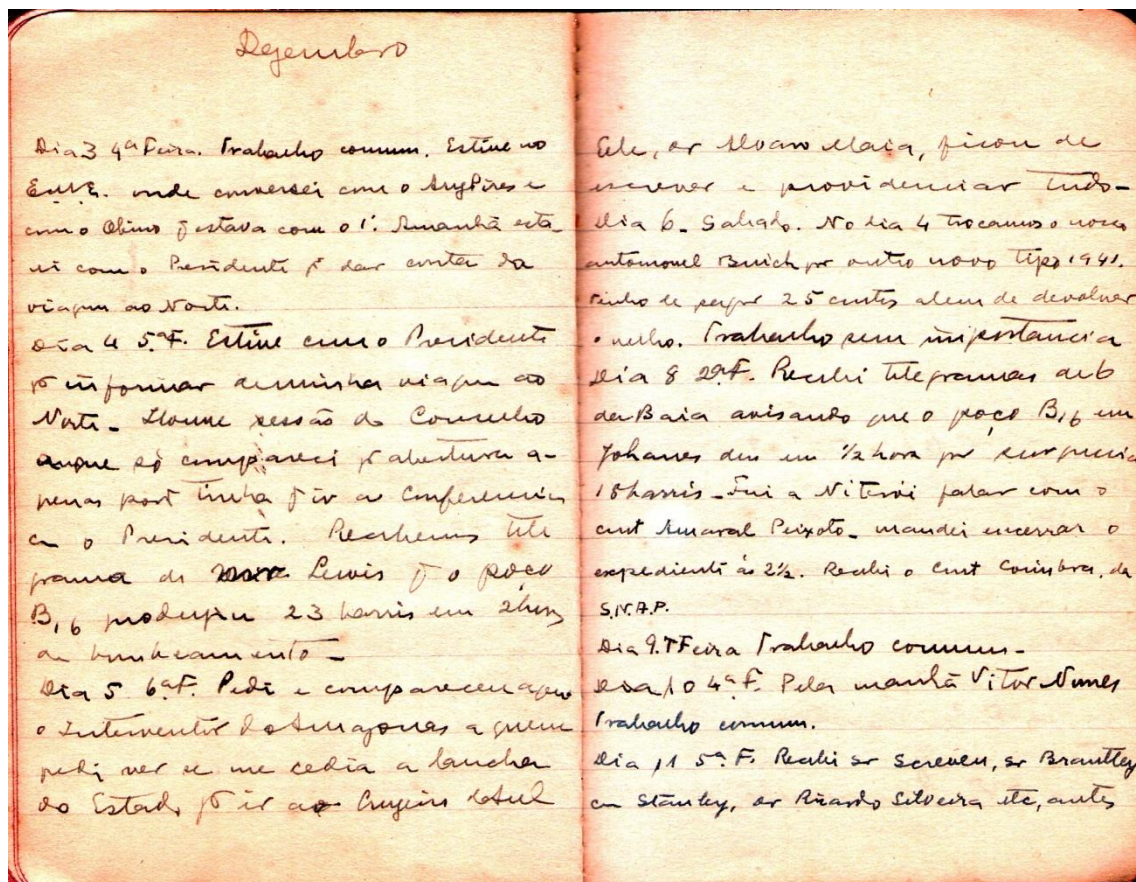 Dezembro
Dia 3 4ª Feira. Trabalho comum. Estive no
onde conversei com o Ary Pires e
com o estava com o 1º. Amanhã esta-
rei com o Presidente p dar conta da
viagem ao Norte.
Dia 4 5ª F. Estive com o Presidente
p informar de minha viagem ao
Norte – Houve sessão do Conselho
só compareci p abertura a-
penas tinha q ir a Conferencia
c o Presidente. Recebemos tele
grama de Lewis q o poço
B,16 produziu 23 barris em 2 horas
de bombeamento –
Dia 5 6ª F. Pedi e compareceu
o Interventor do Amazonas a quem
pedi ver se me cedia a lancha
do Estado p ir ao Cruzeiro do Sul
Ele, sr Alvaro Maia, ficou de
escrever e providenciar tudo –
Dia 6 – Sabado. No dia 4 trocamos o nosso
automovel Buick por outro novo tipo 1941.
Tenho de pagar 25 contos alem de devolver
o velho. Trabalho sem importancia
Dia 8 2ª F. Recebi telegramas de 6
da Baia avisando que o poço B,16 em
Johanes deu em ½ hora por surgencia
18 barris – Fui a Niteroi falar com o
cmt Amaral Peixoto – mandei encerrar o
expediente ás 2½. Recebi o Cmt Coimbra, da
S.N.A.P.
Dia 9. T Feira Trabalho comum –
Dia 10 4ª F. Pela manhã Vitor Nunes
Trabalho comum.
Dia 11 5ª F. Recebi sr Screven, sr Brantley
cm Stanley, sr Ricardo Silveira etc, antes